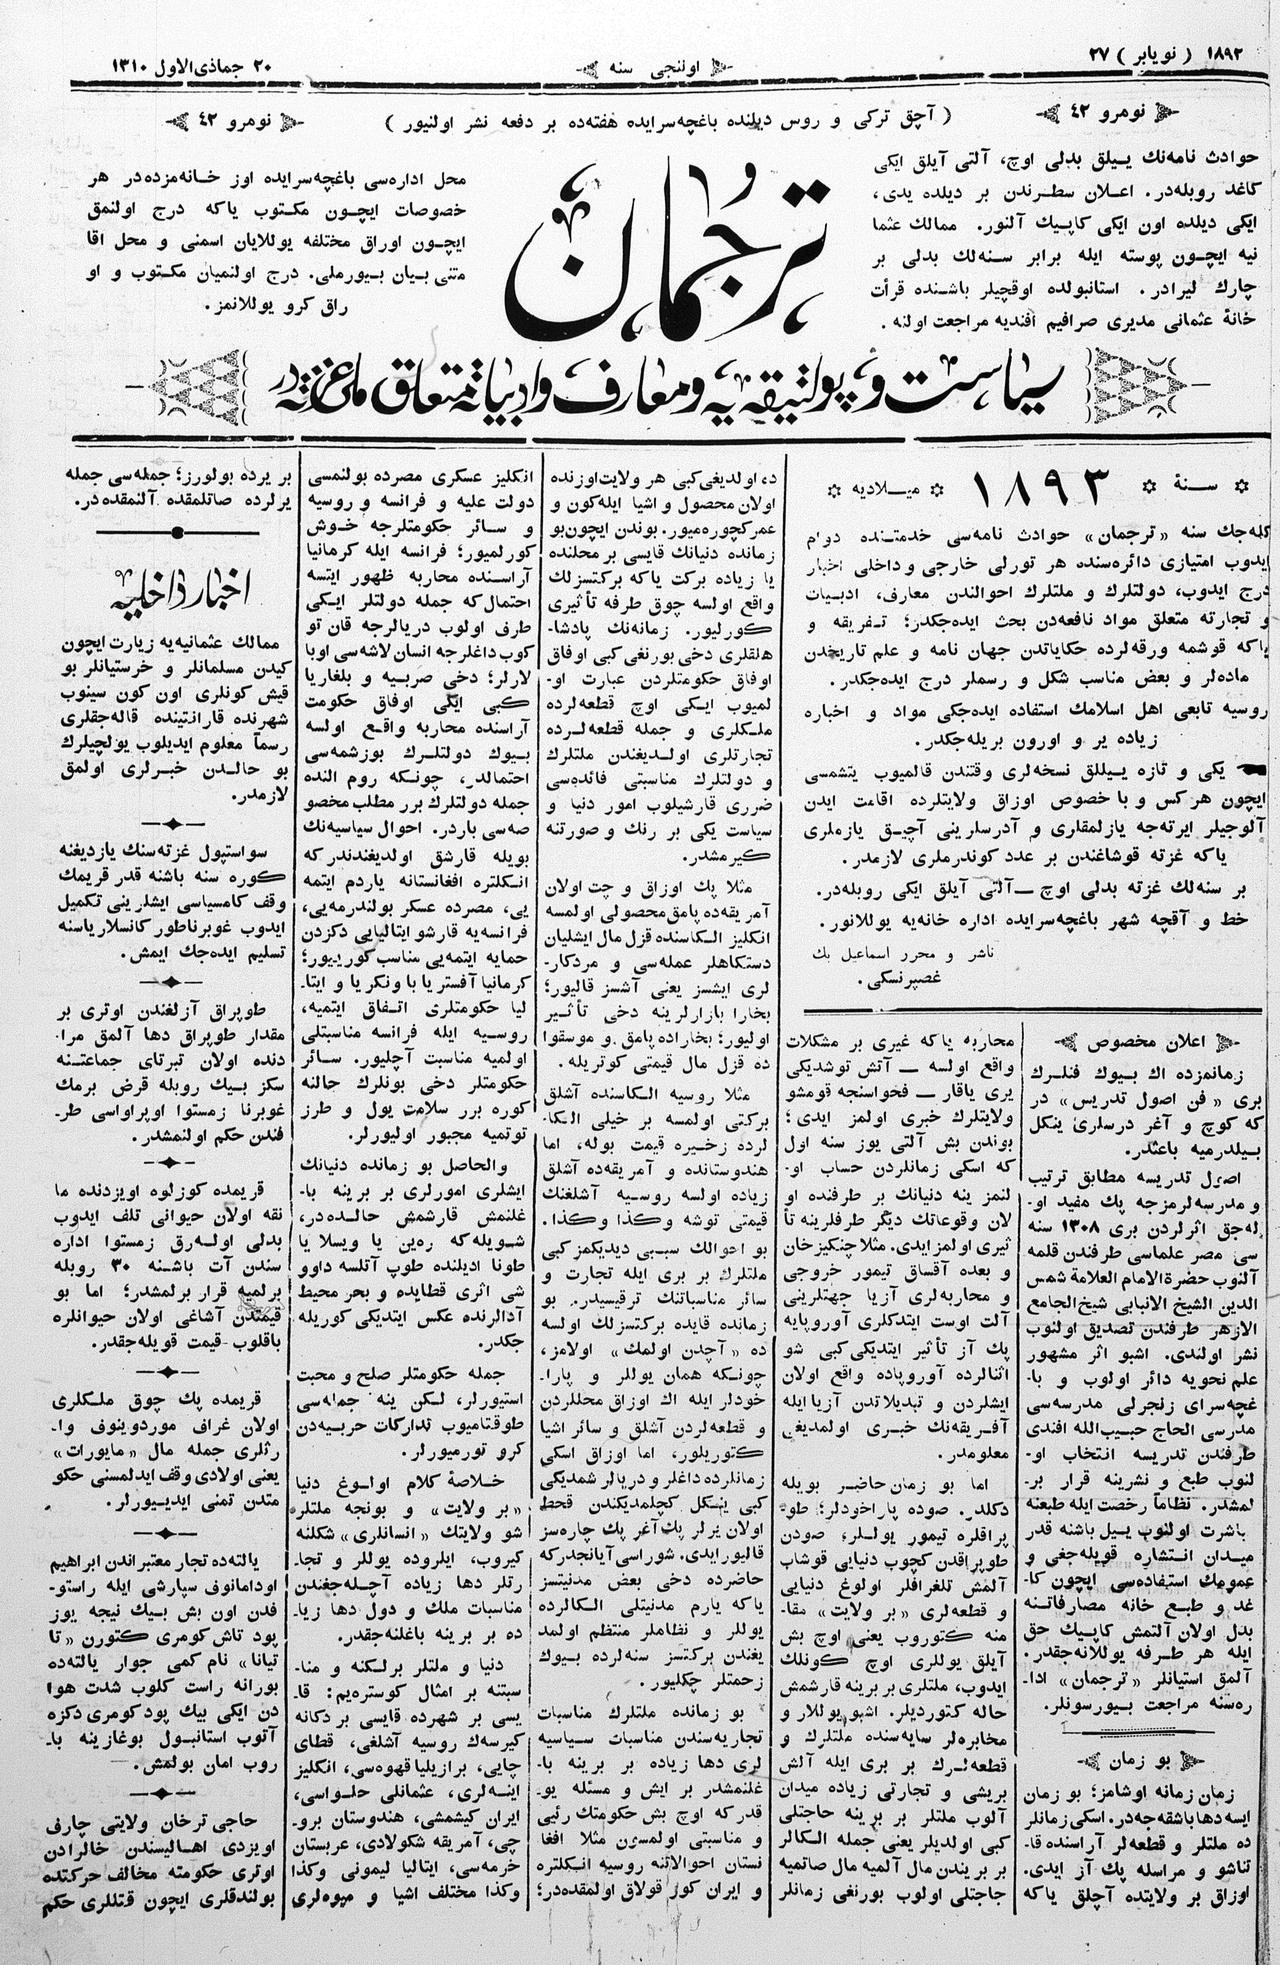 ١٨٩٢ ( نويابر ) ٢٧
اوننجى سنه
٢٠ جماذى الاول ١٣١٠
نومرو ٤٢
( آچق تركى و روس ديلنده باغچه سرايده هفته ده بر دفعه نشر اولنيور )
نومرو ٤٢
حوادث نامه نك ييلق بدلى اوچ، آلتى آيلق ايكى
كاغد روبله در. اعلان سطرندن بر ديلده يدى،
ايكى ديلده اون ايكى كاپيك آلنور. ممالك عثما
نيه ايچون پوسته ايله برابر سنه لك بدلى بر
چارك ليرادر. استانبولده اوقچيلر باشنده قرأت
خانۀ عثمانى مديرى صرافيم افنديه مراجعت اولنه.
ترجمان
محل اداره سى باغچه سرايده اوز خانه مزده در هر
خصوصات ايچون مكتوب ياكه درج اولنمق
ايچون اوراق مختلفه يوللايان اسمنى و محل اقا
متنى بيان بيورملى. درج اولنميان مكتوب و او
راق كرو يوللانمز.
سياست و پولتيقه يه و معارف و ادبياته متعلق ملى غزته در
سنۀ ١٨٩٣ ميلاديه
كله جك سنه «ترجمان» حوادث نامه سى خدمتنده دوام
ايدوب امتيازى دائره سنده هر تورلى خارجى و داخلى اخبار
درج ايدوب، دولتلرك و ملتلرك احوالندن معارف، ادبيات
و تجارته متعلق مواد نافعه دن بحث ايده جكدر؛ تفريقه و
ياكه قوشمه ورقه لرده حكاياتدن جهان نامه و علم تاريخدن
ماده لر و بعض مناسب شكل و رسملر درج ايده جكدر.
روسيه تابعى اهل اسلامك استفاده ايده جكى مواد و اخباره
زياده ير و اورون بريله جكدر.
يكى و تازه ييللق نسخه لرى وقتندن قالميوب يتشمسى
ايچون هر كس و با خصوص اوزاق ولايتلرده اقامت ايدن
آلوجيلر ايرته جه يازلمقلرى و آدرسلرينى آچيق يازملرى
ياكه غزته قوشاغندن بر عدد كوندرملرى لازمدر.
بر سنه لك غزته بدلى اوچ — آلتى آيلق ايكى روبله در.
خط و آقچه شهر باغچه سرايده اداره خانه يه يوللانور.
ناشر و محرر اسماعيل بك
غصپرنسكى.
اعلان مخصوص
زمانمزده اك بيوك فنلرك
برى «فن اصول تدريس» در
كه كوچ و آغر درسلرى ينكل
بيلدرميه باعثدر.
اصول تدريسه مطابق ترتيب
و مدرسه لرمزجه پك مفيد او-
له جق اثرلردن برى ١٣٠٨ سنه
سى مصر علماسى طرفندن قلمه
آلنوب حضرة الامام العلامة شمس
الدين الشيخ الانبابى شيخ الجامع
الازهر طرفندن تصديق اولنوب
نشر اولندى. اشبو اثر مشهور
علم نحويه دائر اولوب و با-
غچه سراى زنجرلى مدرسه سى
مدرسى الحاج حبيب الله افندى
طرفندن تدريسه انتخاب او-
لنوب طبع و نشرينه قرار بر-
لمشدر. نظاماً رخصت ايله طبعنه
باشرت اولنوب ييل باشنه قدر
ميدان انتشاره قويله جغى و
عمومك استفاده سى ايچون كا-
غد و طبع خانه مصارفاتنه
بدل اولان آلتمش كاپيك حق
ايله هر طرفه يوللانه جقدر.
آلمق استيانلر «ترجمان» ادا-
ره سنه مراجعت بيورسونلر.
بو زمان
زمان زمانه اوشامز؛ بو زمان
ايسه دها باشقه جه در. اسكى زمانلر
ده ملتلر و قطعه لر آراسنده قا-
تناشو و مراسله پك آز ايدى.
اوزاق بر ولايتده آچلق ياكه
محاربه ياكه غيرى بر مشكلات
واقع اولسه — آتش توشديكى
يرى ياقار — فخواسنجه قومشو
ولايتلرك خبرى اولمز ايدى؛
بوندن بش آلتى يوز سنه اول
كه اسكى زمانلردن حساب او-
لنمز ينه دنيانك بر طرفنده او
لان وقوعاتك ديگر طرفلرينه تأ
ثيرى اولمز ايدى. مثلا چنكيز خان
و بعده آقساق تيمور خروجى
و محاربه لرى آزيا جهتلرينى
آلت اوست ايتدكلرى آوروپايه
پك آز تأثير ايتديكى كبى شو
اثنالرده آوروپاده واقع اولان
ايشلردن و تبديلاتدن آزيا ايله
آفريقه نك خبرى اولمديغى
معلومدر.
اما بو زمان حاضر بويله
دكلد. صوده پاراخودلر؛ طو-
پراقلره تيمور يوللر، صودن
طوپراقدن كچوب دنيايى قوشاب
آلمش تلغرافلر اولوغ دنيايى
و قطعه لرى «بر ولايت» مقا-
منه كتوروب يعنى اوچ بش
آيلق يوللرى اوچ كونلك
ايدوب، ملتلرى بر برينه قارشمش
حاله كتورديلر. اشبو يوللار و
مخابره لر سايه سنده ملتلرك و
قطعه لرك بر برى ايله آلش
بريشى و تجارتى زياده ميدان
آلوب ملتلر بر برينه حاجتلى
كبى اولديلر يعنى جمله الكالر
بر بريندن مال آلميه مال صاتميه
حاجتلى اولوب بورنغى زمانلر
ده، اولديغى كبى هر ولايت اوزنده
اولان محصول و اشيا ايله كون و
عمر كچوره ميور. بوندن ايچون بو
زمانده دنيانك قايسى بر محلنده
يا زياده بركت ياكه بركتسزلك
واقع اولسه چوق طرفه تأثيرى
كورليور. زمانه نك پادشا-
هلقلرى دخى بورنغى كبى اوفاق
اوفاق حكومتلردن عبارت او-
لميوب ايكى اوچ قطعه لرده
ملكلرى و جمله قطعه لرده
تجارتلرى اولديغندن ملتلرك
و دولتلرك مناسبتى فائده سى
ضررى قارشيلوب امور دنيا و
سياست يكى بر رنك و صورتنه
كيرمشدر.
مثلا پك اوزاق و چت اولان
آمريقه ده پامق محصولى اولمسه
انكليز الكاسنده قزل مال ايشليان
دستكاهلر عمله سى و مردكار-
لرى ايشسز يعنى آشسز قاليور؛
بخارا بازارلرينه دخى تأثير
اوليور؛ بخاراده پامق و موسقوا
ده قزل مال قيمتى كوتريله.
مثلا روسيه الكاسنده آشلق
بركتى اولمسه بر خيلى الكا-
لرده زخيره قيمت بوله، اما
هندوستانده و آمريقه ده آشلق
زياده اولسه روسيه آشلغنك
قيمتى توشه و كذا و كذا.
بو احوالك سببى ديديكمز كبى
ملتلرك بر برى ايله تجارت و
سائر مناسباتنك ترقيسيدر. بو
زمانده قايده بركتسزلك اولسه
ده «آچدن اولمك» اولامز،
چونكه همان يوللر و پارا-
خودلر ايله اك اوزاق محللردن
و قطعه لردن آشلق و سائر اشيا
كتوريلور، اما اوزاق اسكى
زمانلرده داغلر و دريالر شمديكى
كبى ينكل كچلمديكندن قحط
اولان يرلر پك آغر پك چاره سز
قاليور ايدى. شوراسى آيانجدر كه
حاضرده دخى بعض مدنيتسز
ياكه يارم مدنيتلى الكالرده
يوللر و نظاملر منتظم اولمد
يغندن بركتسز سنه لرده بيوك
زحمتلر چكليور.
بو زمانده ملتلرك مناسبات
تجاريه سندن مناسبات سياسيه
لرى دها زياده بر برينه با-
غلنمشدر بر ايش و مسئله يو-
قدر كه اوچ بش حكومتك رئيى
و مناسبتى اولمسون مثلا افغا
نستان احوالاتنه روسيه انكلتره
و ايران كوز قولاق اولمقده در؛
انكليز عسكرى مصرده بولنمسى
دولت عليه و فرانسه و روسيه
و سائر حكومتلرجه خوش
كورلميور؛ فرانسه ايله كرمانيا
آراسنده محاربه ظهور ايتسه
احتمال كه جمله دولتلر ايكى
طرف اولوب دريالرجه قان تو
كوب داغلرجه انسان لاشه سى اويا
لارلر؛ دخى صربيه و بلغاريا
كبى ايكى اوفاق حكومت
آراسنده محاربه واقع اولسه
بيوك دولتلرك بوزشمه سى
احتمالدر، چونكه روم النده
جمله دولتلرك برر مطلب مخصو
صه سى باردر. احوال سياسيه نك
بويله قارشق اولديغندندر كه
انكلتره افغانستانه ياردم ايتمه
يى، مصرده عسكر بولندرمه يى،
فرانسه يه قارشو ايتاليايى دكزدن
حمايه ايتمه يى مناسب كورييور؛
كرمانيا آفستريا با ونكريا و ايتا-
ليا حكومتلرى اتفاق ايتميه،
روسيه ايله فرانسه مناسبتلى
اولميه مناسبت آچليور. سائر
حكومتلر دخى بونلرك حالنه
كوره برر سلامت يول و طرز
توتميه مجبور اوليورلر.
والحاصل بو زمانده دنيانك
ايشلرى امورلرى بر برينه با-
غلنمش قارشمش حالده در،
شويله كه ره ين يا ويسلا يا
طونا اديلنده طوپ آتلسه داوو
شى اثرى قطايده و بحر محيط
آدالرنده عكس ايتديكى كوريله
جكدر.
جمله حكومتلر صلح و محبت
استيورلر، لكن ينه جمله سى
طوقتاميوب تداركات حربيه دن
كرو تورميورلر.
خلاصۀ كلام اولوغ دنيا
«بر ولايت» و بونجه ملتلر
شو ولايتك «انسانلرى» شكلنه
كيروب، ايلروده يوللر و تجا-
رتلر دها زياده آچله جغندن
مناسبات ملك و دول دها زيا-
ده بر برينه باغلنه جقدر.
دنيا و ملتلر برلكنه و منا-
سبتنه بر امثال كوستره يم: قا-
يسى بر شهرده قايسى بر دكانه
كيرسه ك روسيه آشلغى، قطاى
چايى، برازيليا قهوه سى، انكليز
اينه لرى، عثمانلى حلواسى،
ايران كيشمشى، هندوستان برو-
چى، آمريقه شكولادى، عربستان
خرمه سى، ايتاليا ليمونى وكذا
وكذا مختلف اشيا و ميوه لرى
بر يرده بولورز؛ جمله سى جمله
يرلرده صاتلمقده آلنمقده در.
اخبار داخليه
ممالك عثمانيه يه زيارت ايچون
كيدن مسلمانلر و خرستيانلر بو
قيش كونلرى اون كون سينوب
شهرنده قارانتينده قاله جقلرى
رسماً معلوم ايديلوب يولچيلرك
بو حالدن خبرلرى اولمق
لازمدر.
سواستپول غزته سنك يازديغنه
كوره سنه باشنه قدر قريمك
وقف كامسياسى ايشلرينى تكميل
ايدوب غوبرناطور كانسلارياسنه
تسليم ايده جك ايمش.
طوپراق آزلغندن اوترى بر
مقدار طوپراق دها آلمق مرا-
دنده اولان تبرتاى جماعتنه
سكز بيك روبله قرض برمك
غوبرنا زمستوا اوپراواسى طر-
فندن حكم اولنمشدر.
قريمده كوزلوه اويزدنده ما
نقه اولان حيوانى تلف ايدوب
بدلى اوله رق زمستوا اداره
سندن آت باشنه ٣٠ روبله
برلميه قرار برلمشدر؛ اما بو
قيمتدن آشاغى اولان حيوانلره
باقلوب قيمت قويله جقدر.
قريمده پك چوق ملكلرى
اولان غراف موردوينوف وا-
رثلرى جمله مال «مايورات»
يعنى اولادى وقف ايدلمسنى حكو
متدن تمنى ايدييورلر.
يالته ده تجار معتبراندن ابراهيم
اودامانوف سپارشى ايله راستو-
فدن اون بش بيك نيجه يوز
پود تاش كومرى كتورن «تا
تيانا» نام كمى جوار يالته ده
بورانه راست كلوب شدت هوا
دن ايكى بيك پود كومرى دكزه
آتوب استانبول بوغازينه با-
روب امان بولمش.
حاجى ترخان ولايتى چارفى
اويزدى اهاليسندن خالرادن
اوترى حكومته مخالف حركتده
بولندقلرى ايچون قتللرى حكم